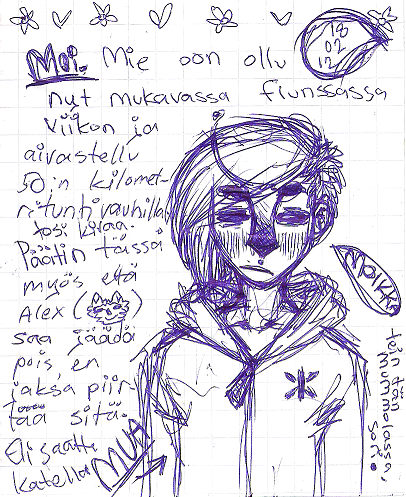 Moi. Mie oon ollu
nyt mukavassa flunssassa
viikon ja
aivastellu
50:in kilomet-
rituntivauhilla,
tosi kivaa.
Päätin tässä
myös että
Alex ( )
saa jäädä
pois, en
jaksa piir-
tää sitä.
Eli saatte
katella MUA
18
02
12
MOIKKA
tein tän
mummolassa,
sori.